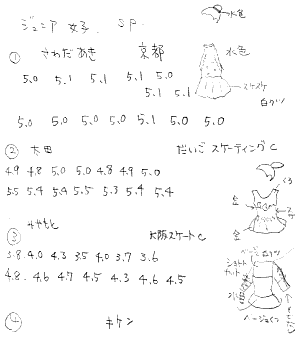 ジュニア 女子 SP.
水色
① さわだ あき 京都
水色
5.0 5.1 5.1 5.1 5.0
5.1 5.1
スケスケ
白クツ
5.0 5.0 5.0 5.0 5.1 5.0 5.0
② 太田 だいご スケーティングC
4.9 4.8 5.0 5.0 4.8 4.9 5.0
くろ
5.5 5.4 5.4 5.5 5.3 5.4 5.4
金
金
③ みやもと 大阪スケートC
3.8 4.0 4.3 3.5 4.0 3.7 3.6
ショート
カット
4.8 4.6 4.7 4.5 4.3 4.6 4.5
ベージュ
④ キケン